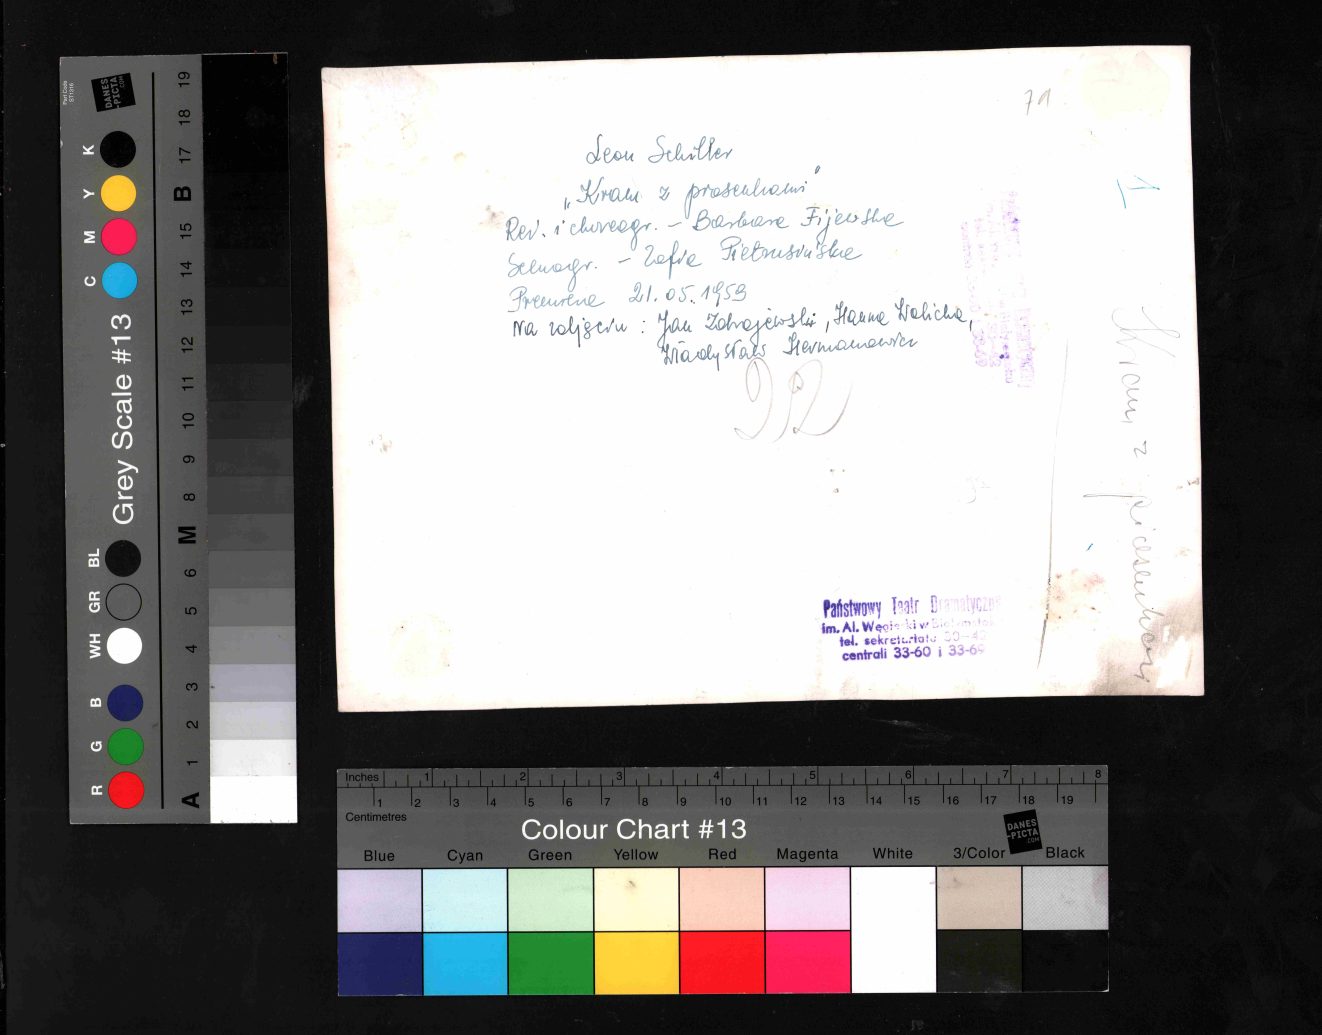 71
Leon Schiller
„Kram z piosenkami"
Reż. i choreogr. – Barbara Fijewska
Scenogr. – Zofia Pietrusińska
Premiera 21.05.1959
Na zdjęciu : Jan Zdrojewski, Hanna Wolicka,
Władysław Hermanowicz
1
Kram z piosenkami
Państwowy Teatr Dramatyczn
im. Al. Węgierki w Białymstok
tel. sekretariatu
centrali 33-60 i 33-69
Part Code
ST1316
DANES
-PICTA
.COM
Grey Scale #13
K Y M C
BL GR WH
B G R
19 18 17 B 15 14 13 12 11 10 9 8 M 6 5 4 3 2 1 A
Inches 1 2 3 4 5 6 7 8
1 2 3 4 5 6 7 8 9 10 11 12 13 14 15 16 17 18 19
Centimetres
Colour Chart #13
DANES
-PICTA
.COM
Blue Cyan Green Yellow Red Magenta White 3/Color Black